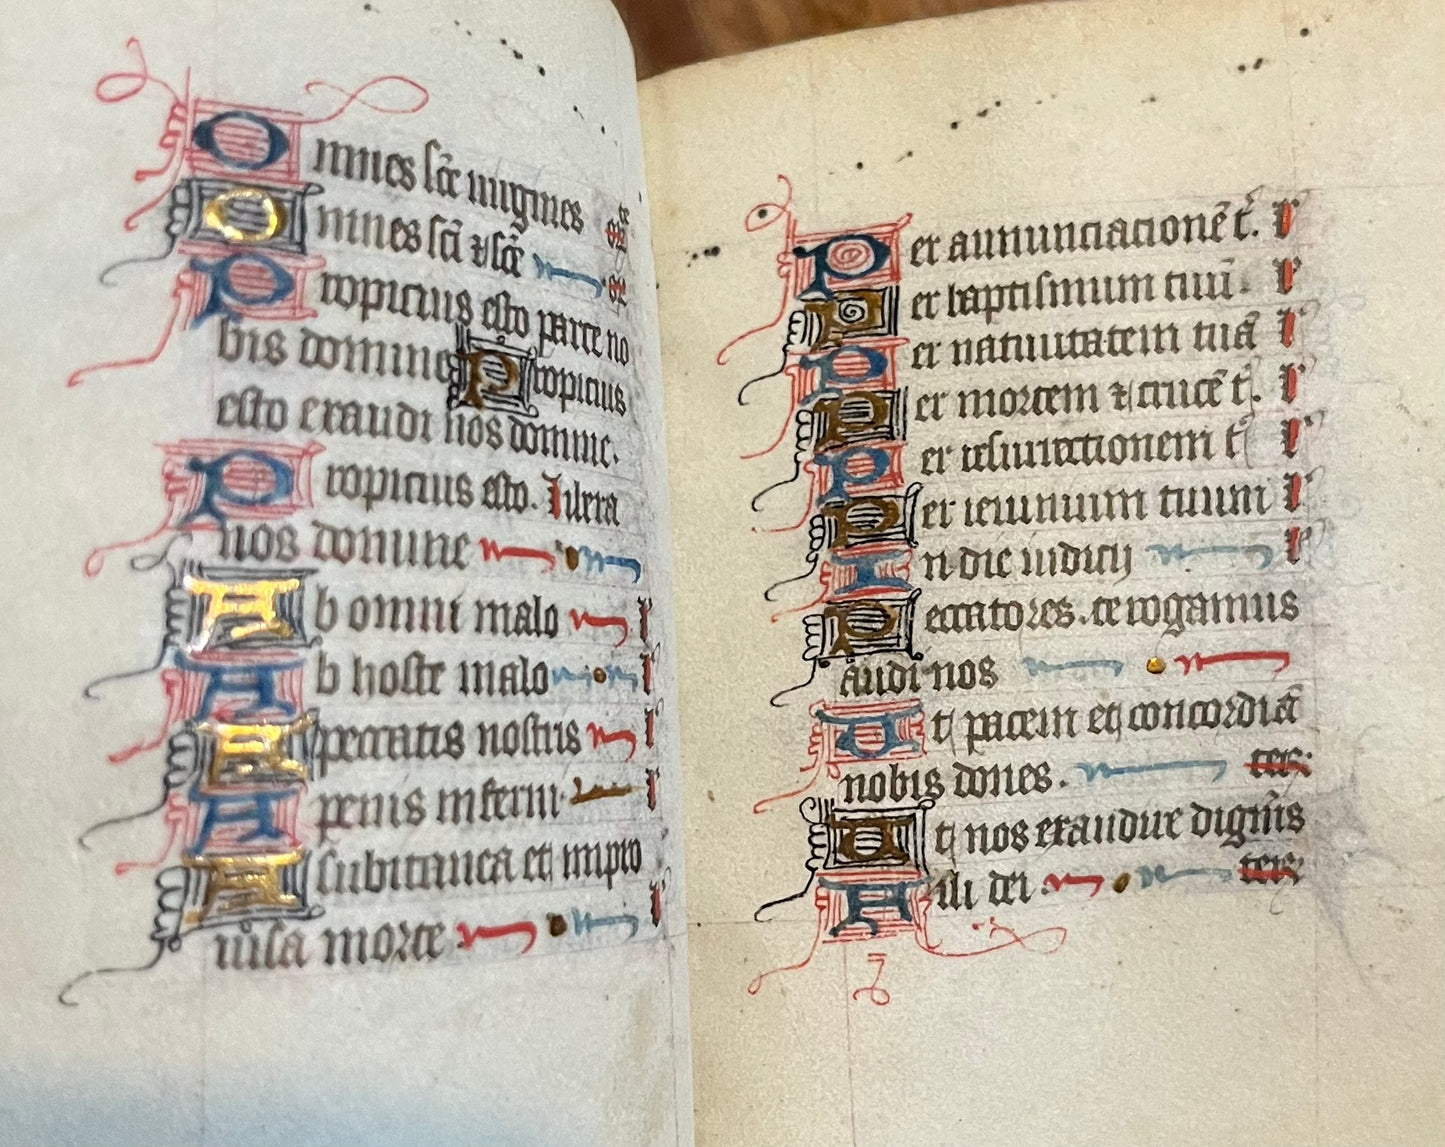 Omnes sc̄e uirgines or̄ te
Omnes sc̄i ⁊ sc̄e or̄
Propicius esto parce no
bis domine Propicius
esto exaudi nos domine.
Propicius esto. Libera
nos domine
Ab omni malo l
Ab hoste malo l
A peccatis nostris l
A penis inferni l
A subitanea et inpro
uisa morte l
Per annunciacionē t̄. l
Per baptismum tuū. l
Per natiuitatem tuā l
Per mortem ⁊ crucē t̄. l
Per resurrectionem t̄ l
Per ieiunium tuum l
In die iudicij l
Peccatores. te rogamus
audi nos
Ut pacem et concordiā
nobis dones. ter.
Ut nos exaudire digrīs
Fili dei. ter.